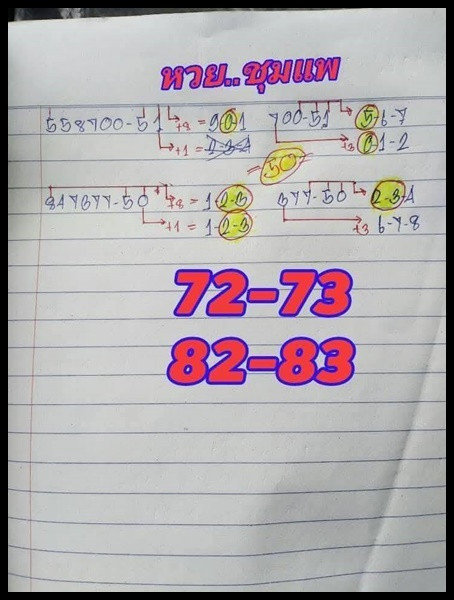 หวย..ชุมแพ
558700-51 +8 = 9 0-1 700-51 5-6-7
+1 = 2-3-4 +3 0-1-2
= 50 =
847677-50 +8 = 1-2-3 677-50 2-3-4
+1 = 1-2-3 +3 6-7-8
72-73
82-83